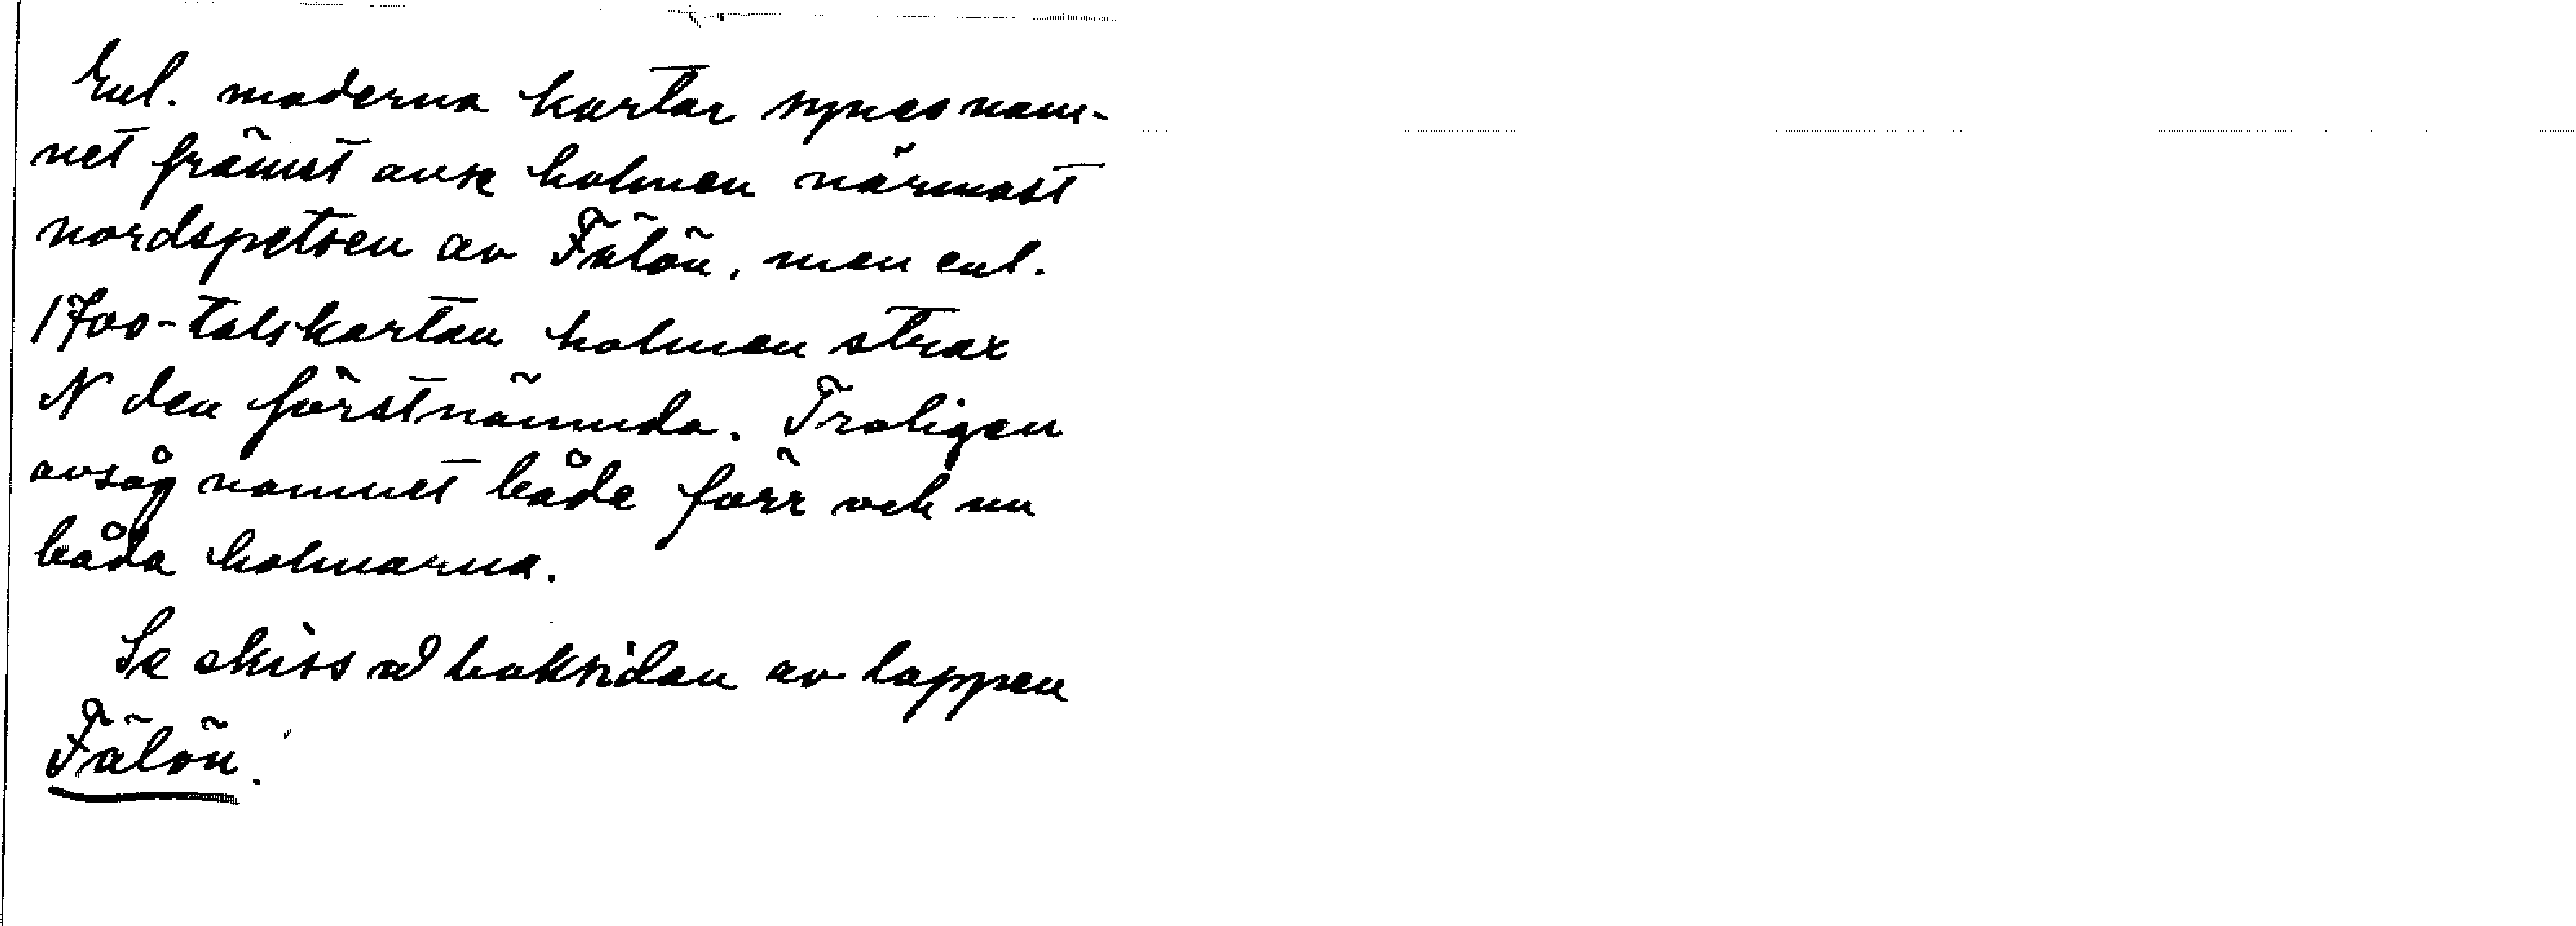 Enl. moderna kartor synes nam-
net främst avse holmen närmast
nordspetsen av Fälön, men enl.
1700-talskartan holmen strax
N den förstnämnda. Troligen
avsåg namnet både förr och nu
båda holmarna.
Se skiss å baksidan av lappen
Fälön.